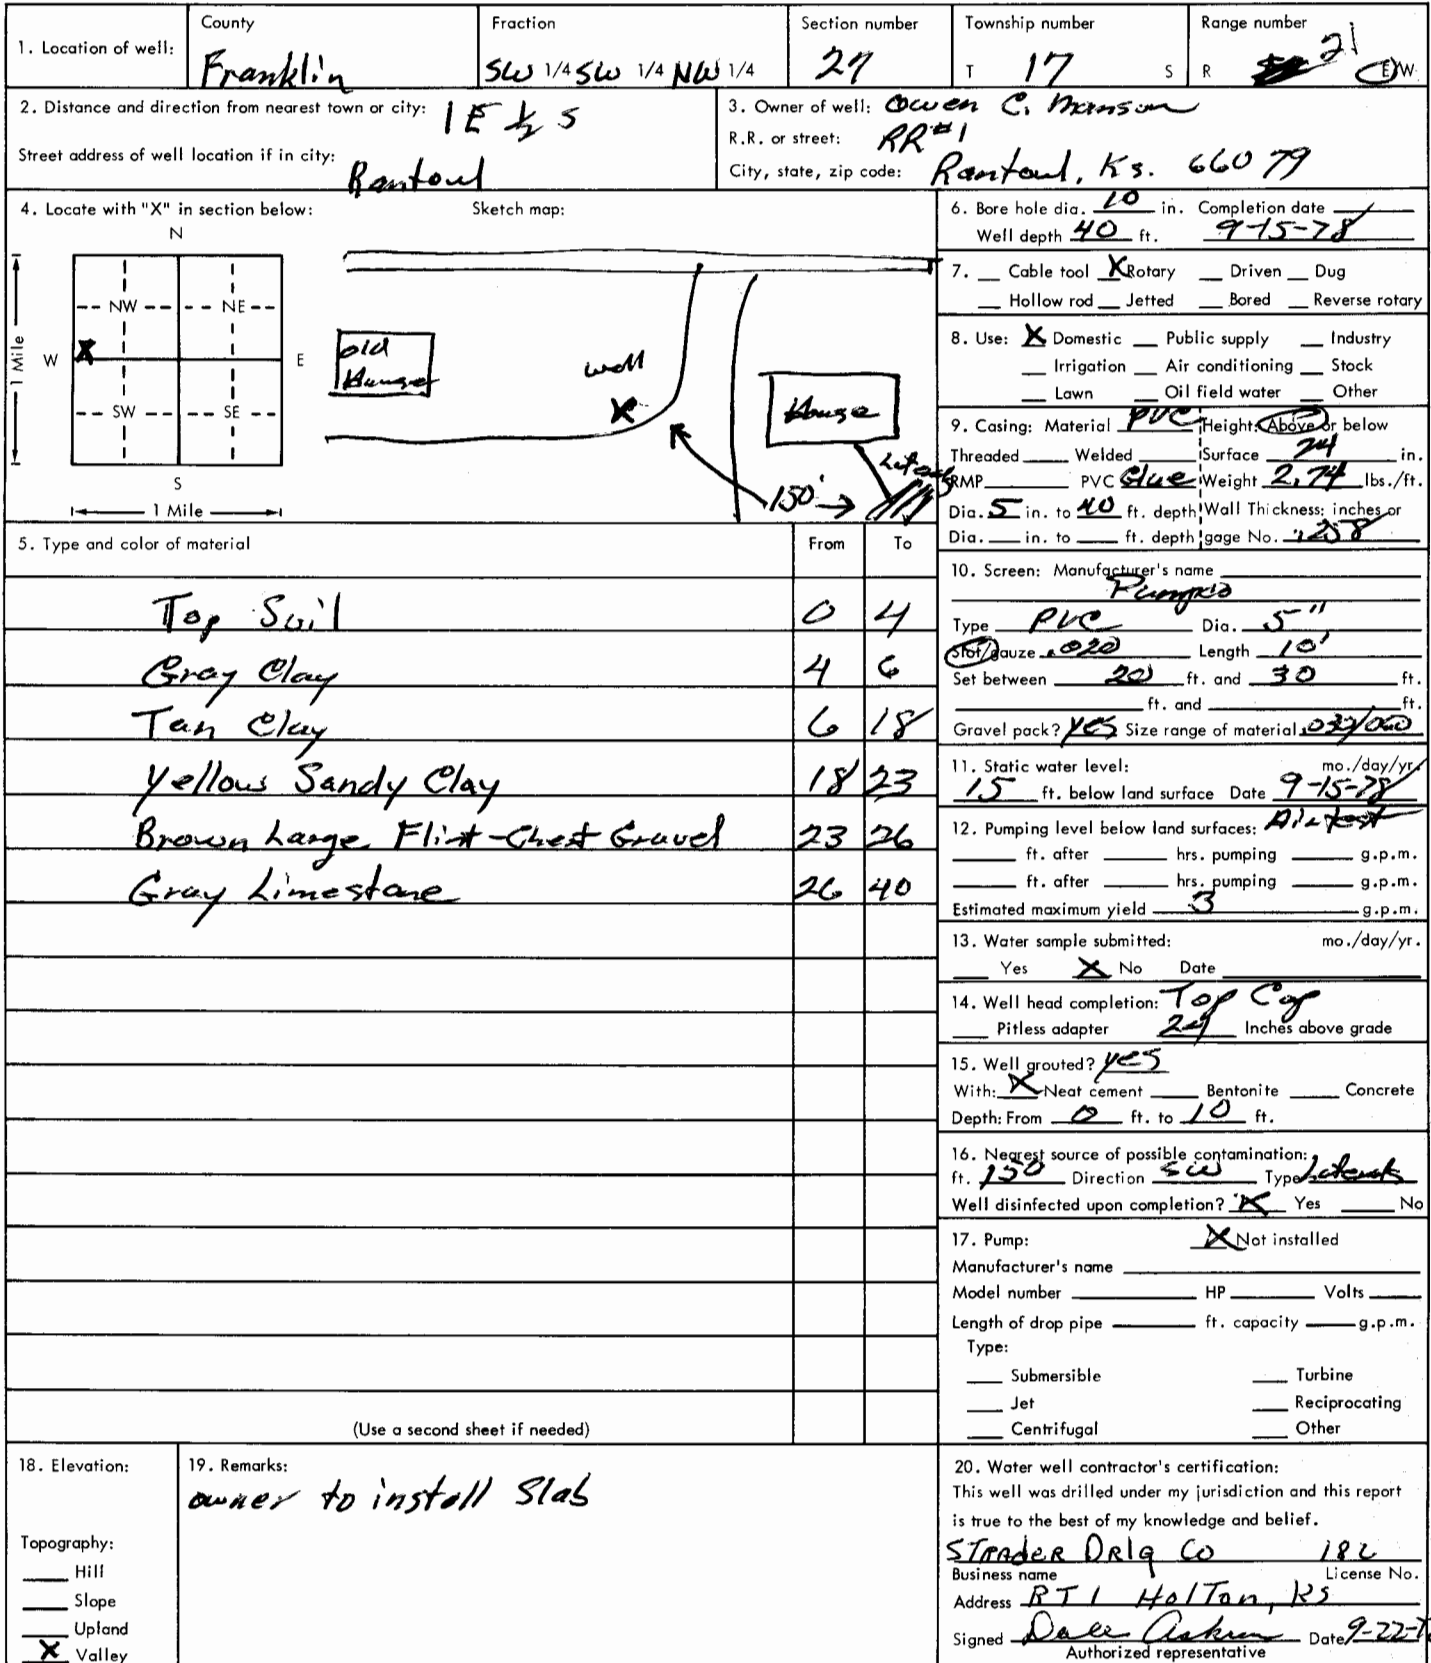 1. Location of well: County Franklin Fraction SW 1/4 SW 1/4 NW 1/4 Section number 27 Township number T 17 S Range number R 21 E/W
2. Distance and direction from nearest town or city: 1 E ½ S
Street address of well location if in city: Rantoul
3. Owner of well: Owen C. Manson
R.R. or street: RR #1
City, state, zip code: Rantoul, Ks. 66079
4. Locate with "X" in section below: Sketch map:
N
NW NE
W X E
SW SE
S
1 Mile
1 Mile
old House
well
X
House
Laterals
150'
5. Type and color of material From To
Top Soil 0 4
Gray Clay 4 6
Tan Clay 6 18
Yellow Sandy Clay 18 23
Brown Large Flint-Chert Gravel 23 26
Gray Limestone 26 40
(Use a second sheet if needed)
6. Bore hole dia. 10 in. Completion date
Well depth 40 ft. 9-15-78
7. Cable tool X Rotary Driven Dug
Hollow rod Jetted Bored Reverse rotary
8. Use: X Domestic Public supply Industry
Irrigation Air conditioning Stock
Lawn Oil field water Other
9. Casing: Material PVC Height: Above or below
Threaded Welded Surface 24 in.
RMP PVC Glue Weight 2.74 lbs./ft.
Dia. 5 in. to 40 ft. depth Wall Thickness: inches or
Dia. in. to ft. depth gage No. .258
10. Screen: Manufacturer's name
Type PVC Dia. 5"
Slot/gauze .020 Length 10'
Set between 20 ft. and 30 ft.
ft. and ft.
Gravel pack? yes Size range of material
11. Static water level: mo./day/yr.
15 ft. below land surface Date 9-15-78
12. Pumping level below land surfaces: Air test
ft. after hrs. pumping g.p.m.
ft. after hrs. pumping g.p.m.
Estimated maximum yield 3 g.p.m.
13. Water sample submitted: mo./day/yr.
Yes X No Date
14. Well head completion: Top Cap
Pitless adapter 24 Inches above grade
15. Well grouted? yes
With: X Neat cement Bentonite Concrete
Depth: From 0 ft. to 10 ft.
16. Nearest source of possible contamination:
ft. 150 Direction SW Type Laterals
Well disinfected upon completion? X Yes No
17. Pump: X Not installed
Manufacturer's name
Model number HP Volts
Length of drop pipe ft. capacity g.p.m.
Type:
Submersible Turbine
Jet Reciprocating
Centrifugal Other
18. Elevation:
Topography:
Hill
Slope
Upland
X Valley
19. Remarks:
owner to install Slab
20. Water well contractor's certification:
This well was drilled under my jurisdiction and this report
is true to the best of my knowledge and belief.
STRADER DRLG CO 182
Business name License No.
Address RT 1 Holton, KS
Signed Dale Date 9-22-
Authorized representative